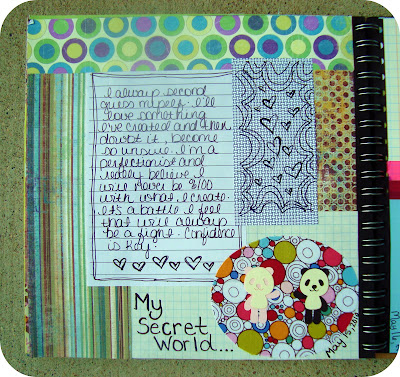 I always second
guess myself. I'll
love something
I've created and then
doubt it, become
so unsure. I'm a
perfectionist and
really believe I
will never be %100
with what I create.
It's a battle I feel
that will always
be a fight. Confidence
is key.
My
Secret
World...